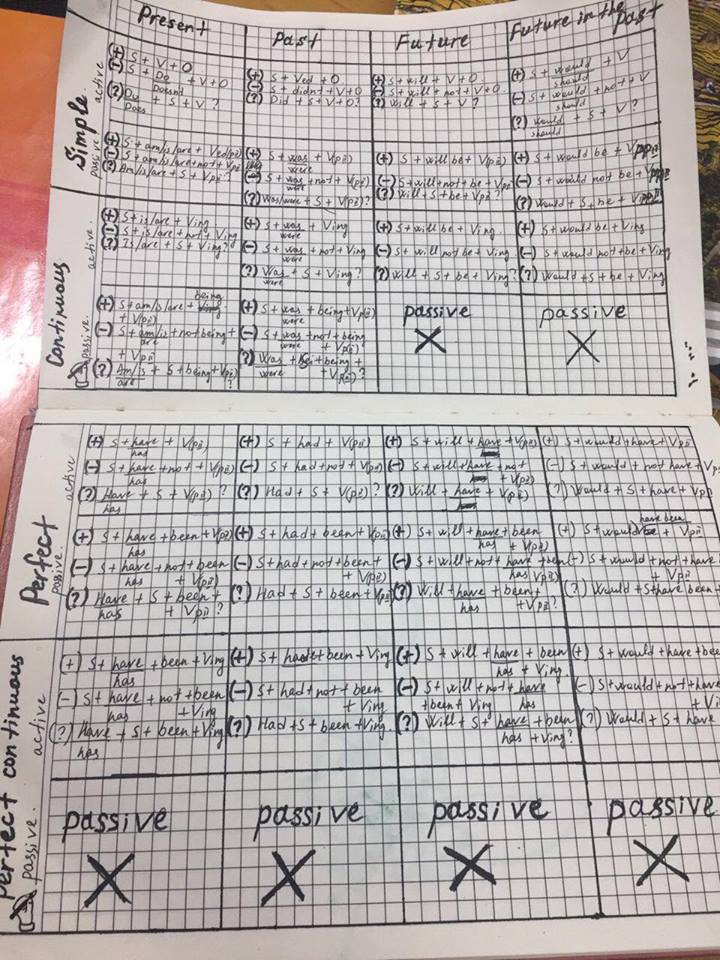 Present Past Future Future in the Past
Simple
active
(+) S + V + O
(-) S + Do + V + O
Doesnt
(?) Do + S + V ?
Does
(+) S + Ved + O
(-) S + didnt + V + O
(?) Did + S + V + O?
(+) S + will + V + O
(-) S + will + not + V + O
(?) Will + S + V ?
(+) S + would + V
should
(-) S + would + not + V
should
(?) Would + S + V ?
should
passive
(+) S + am/is/are + Ved/pII
(-) S + am/is/are + not + VpII
(?) Am/is/are + S + VpII ?
(+) S + was + V(pII)
were
(-) S + was + not + V(pII)
were
(?) Was/were + S + V(pII) ?
(+) S + will be + V(pII)
(-) S + will + not + be + VpII
(?) Will + S + be + VpII ?
(+) S + would be + VpII
(-) S + would not be + VpII
(?) Would + S + be + VpII
Continuous
active
(+) S + is/are + Ving
(-) S + is/are + not + Ving
(?) Is/are + S + Ving?
(+) S + was + Ving
were
(-) S + was + not + Ving
were
(?) Was + S + Ving ?
were
(+) S + will be + Ving
(-) S + will not be + Ving
(?) Will + S + be + Ving ?
(+) S + would be + Ving
(-) S + would not + be + Ving
(?) Would + S + be + Ving
passive.
(+) S + am/is/are + being
+ V(pII)
(-) S + am/is + not + being +
are
+ VpII
(?) Am/is + S + being + VpII
are ?
(+) S + was + being + V(pII)
were
(-) S + was + not + being
were + VpII)
(?) Was + being +
were + V(pII) ?
passive
X
passive
X
Perfect
active
(+) S + have + V(pII)
has
(-) S + have + not + V(pII)
has
(?) Have + S + V(pII) ?
has
(+) S + had + V(pII)
(-) S + had + not + V(pII)
(?) Had + S + V(pII) ?
(+) S + will + have + V(pII)
(-) S + will + have + not
+ V(pII)
(?) Will + have + V(pII)
(+) S + would + have + VpII
(-) S + would + not have + Vp
(?) Would + S + have + VpII
passive.
(+) S + have + been + V(pII)
has
(-) S + have + not + been
has + V(pII)
(?) Have + S + been +
has + VpII ?
(+) S + had + been + V(pII)
(-) S + had + not + been +
+ V(pII)
(?) Had + S + been + V(pII)
(+) S + will + have + been
has + V(pII)
(-) S + will + not + have + been
has V(pII)
(?) Will + have + been +
has + V(pII) ?
(+) S + would have been + VpII
(-) S + would + not
+ V(pII)
(?) Would + S + have been +
Perfect continuous
active
(+) S + have + been + Ving
has
(-) S + have + not + been
has + Ving
(?) Have + S + been + Ving
has
(+) S + had + been + Ving
(-) S + had + not + been
+ Ving
(?) Had + S + been + Ving.
(+) S + will + have + been
has + Ving.
(-) S + will + not + have
+ been + Ving has
(?) Will + S + have + been
has + Ving ?
(+) S + would + have + bee
(-) S + would + not + have
+ Vi
(?) Would + S + have
passive.
passive
X
passive
X
passive
X
passive
X